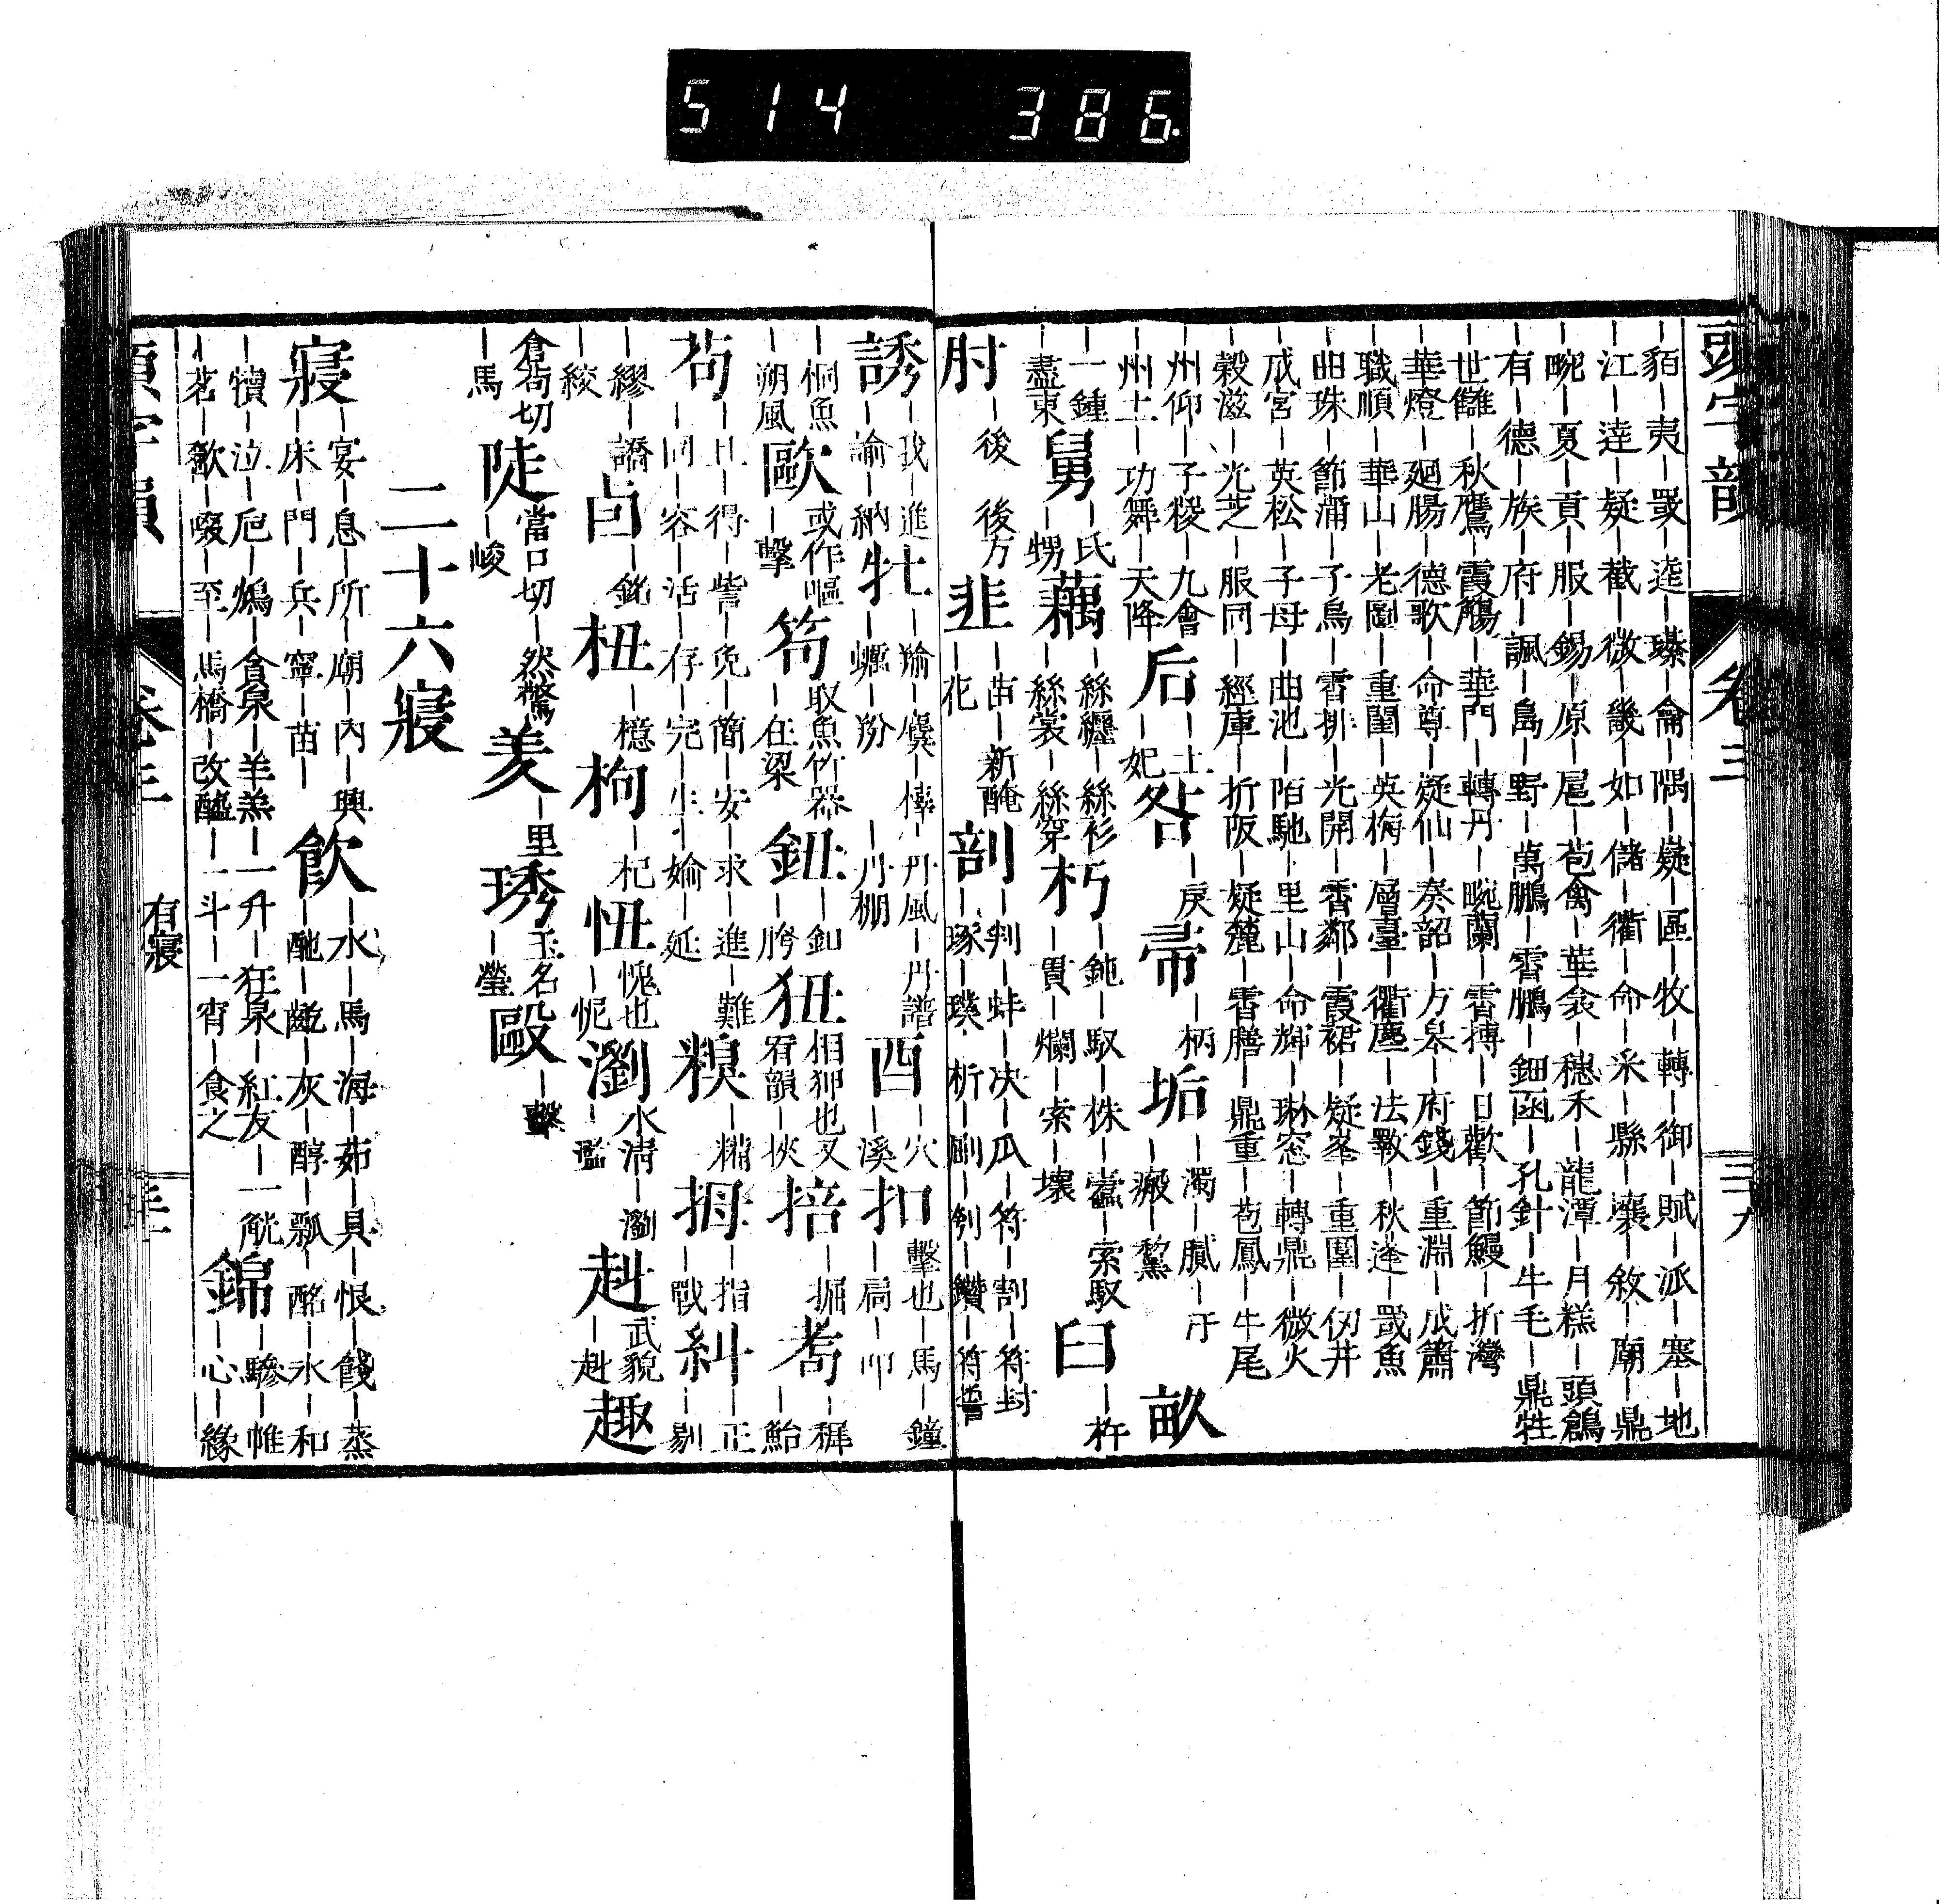 514 386.
頭字韻 卷三 三十九
貊｜夷｜㝡｜逵｜瑧｜侖｜隅｜嶷｜區｜牧｜轉｜御｜賦｜派｜塞｜地
江｜逵｜疑｜截｜微｜畿｜如｜儲｜衢｜命｜采｜縣｜襄｜敘｜廟｜鼎
畹｜夏｜貢｜服｜錫｜原｜扈｜苞禽｜葉｜穗禾｜龍潭｜月糕｜頭鶬
有｜德｜族｜府｜諷｜島｜野｜萬鵬｜霄鵬｜鈿函｜孔針｜牛毛｜鼎牲
世讎｜秋鷹｜霞觴｜華門｜轉丹｜畹蘭｜霄摶｜日歡｜節鰻｜折灣
華燈｜廻腸｜德歌｜命尊｜疑仙｜奏韶｜方皋｜府錢｜重淵｜成簫
職順｜華山｜老圖｜重閨｜英梅｜層臺｜衢塵｜法斁｜秋逢｜㝡魚
曲珠｜節涌｜子鳥｜霄排｜光開｜霄鄰｜霞裙｜疑峯｜重圍｜仞井
成宮｜英松｜子母｜曲池｜陌馳｜里山｜命輝｜琳窓｜轉鼎｜微火
穀滋｜光芝｜服同｜經庫｜折阪｜疑麓｜霄膳｜鼎重｜苞鳳｜牛尾
州仰｜子稜｜九會
州土｜功舞｜天降
后｜土｜妃 咎｜戾 帚｜柄 垢｜濁｜膩｜汙｜瘢｜黧 畝
一鍾
盡東
舅｜氏｜甥 藕｜絲纒｜絲衫｜絲裳｜絲穿 朽｜鈍｜馭｜株｜蠹｜索馭｜貫｜爛｜索｜壞 臼｜杵
肘｜後｜後方 韭｜苗｜新醃｜花 剖｜判｜蚌｜决｜瓜｜符｜割｜符封｜琢｜璞｜析｜劀｜刳｜鑽｜符書
誘｜我｜進｜諭｜納 牡｜羭｜麌｜懐｜丹風｜丹譜｜蠣｜羒｜丹棚 酉｜穴｜溪 扣擊也｜馬｜鐘｜扃｜叩
桐魚
朔風
歐或作嘔｜擊 笱取魚竹器｜在梁 鈕｜釦｜胯 狃相狎也又宥韻｜挾 掊｜掘 耇｜穉｜鮐
茍｜且｜得｜訾｜免｜簡｜安｜求｜進｜難｜同｜容｜活｜存｜完｜生｜婾｜延 糗｜糒 拇｜指｜戰 糾｜正｜剔
繆｜譑
絞
卣｜銘 杻｜檍 枸｜杞 忸愧也｜怩 瀏水清｜瀏｜濫 赳武貌｜赳 趣
倉苟切｜馬 陡當口切｜然驚｜峻 羑｜里 琇玉名｜瑩 毆｜擊
二十六寢
寢｜宴｜息｜所｜廟｜內｜興｜床｜門｜兵｜寧｜苗 飲｜水｜馬｜海｜茹｜具｜恨｜餞｜蒸｜酏｜㱃｜灰｜醇｜瓢｜酩｜氷｜和
犢｜泣｜巵｜鴆｜貪泉｜羊羔｜一升｜狂泉｜紅友｜一觥
茗｜歠｜啜｜至｜馬橋｜改醯｜一斗｜一宵｜食之
錦｜驂｜帷｜心｜緣
有寢